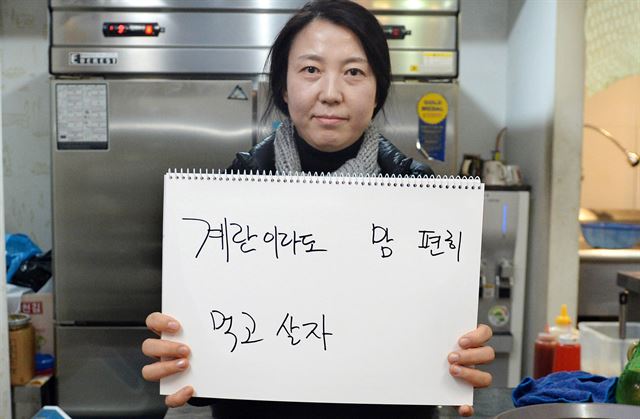 EVEREST
GOLD
MEDAL
계란이라도 맘 편히
먹고 살자